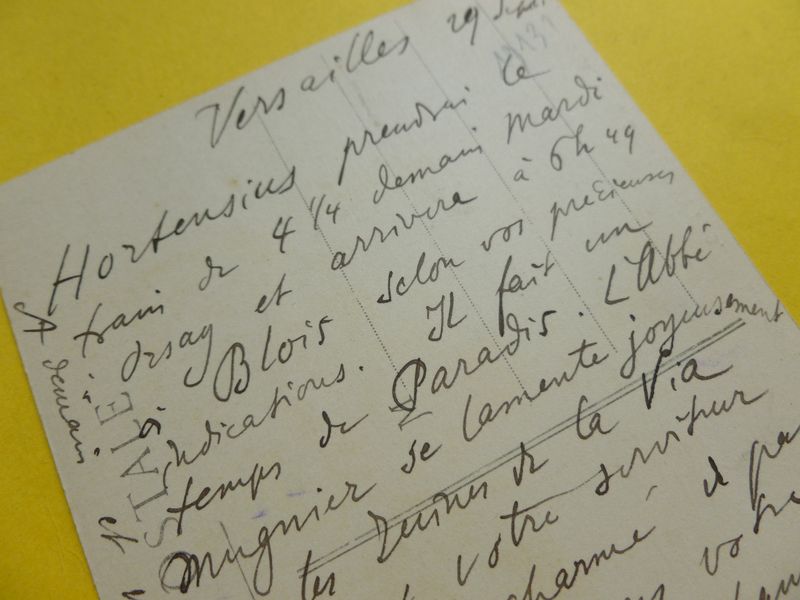 Versailles 29 Sept
Hortensius prendrai le
train de 4 1/4 demain mardi
et arrivera à 6h 49
à Blois selon vos précieuses
indications. Il fait un
temps de Paradis. L'Abbé
Mugnier se lamente joyeusement
les ruines de la Via
votre serviteur
charmé
votre
A demain
et
STALE